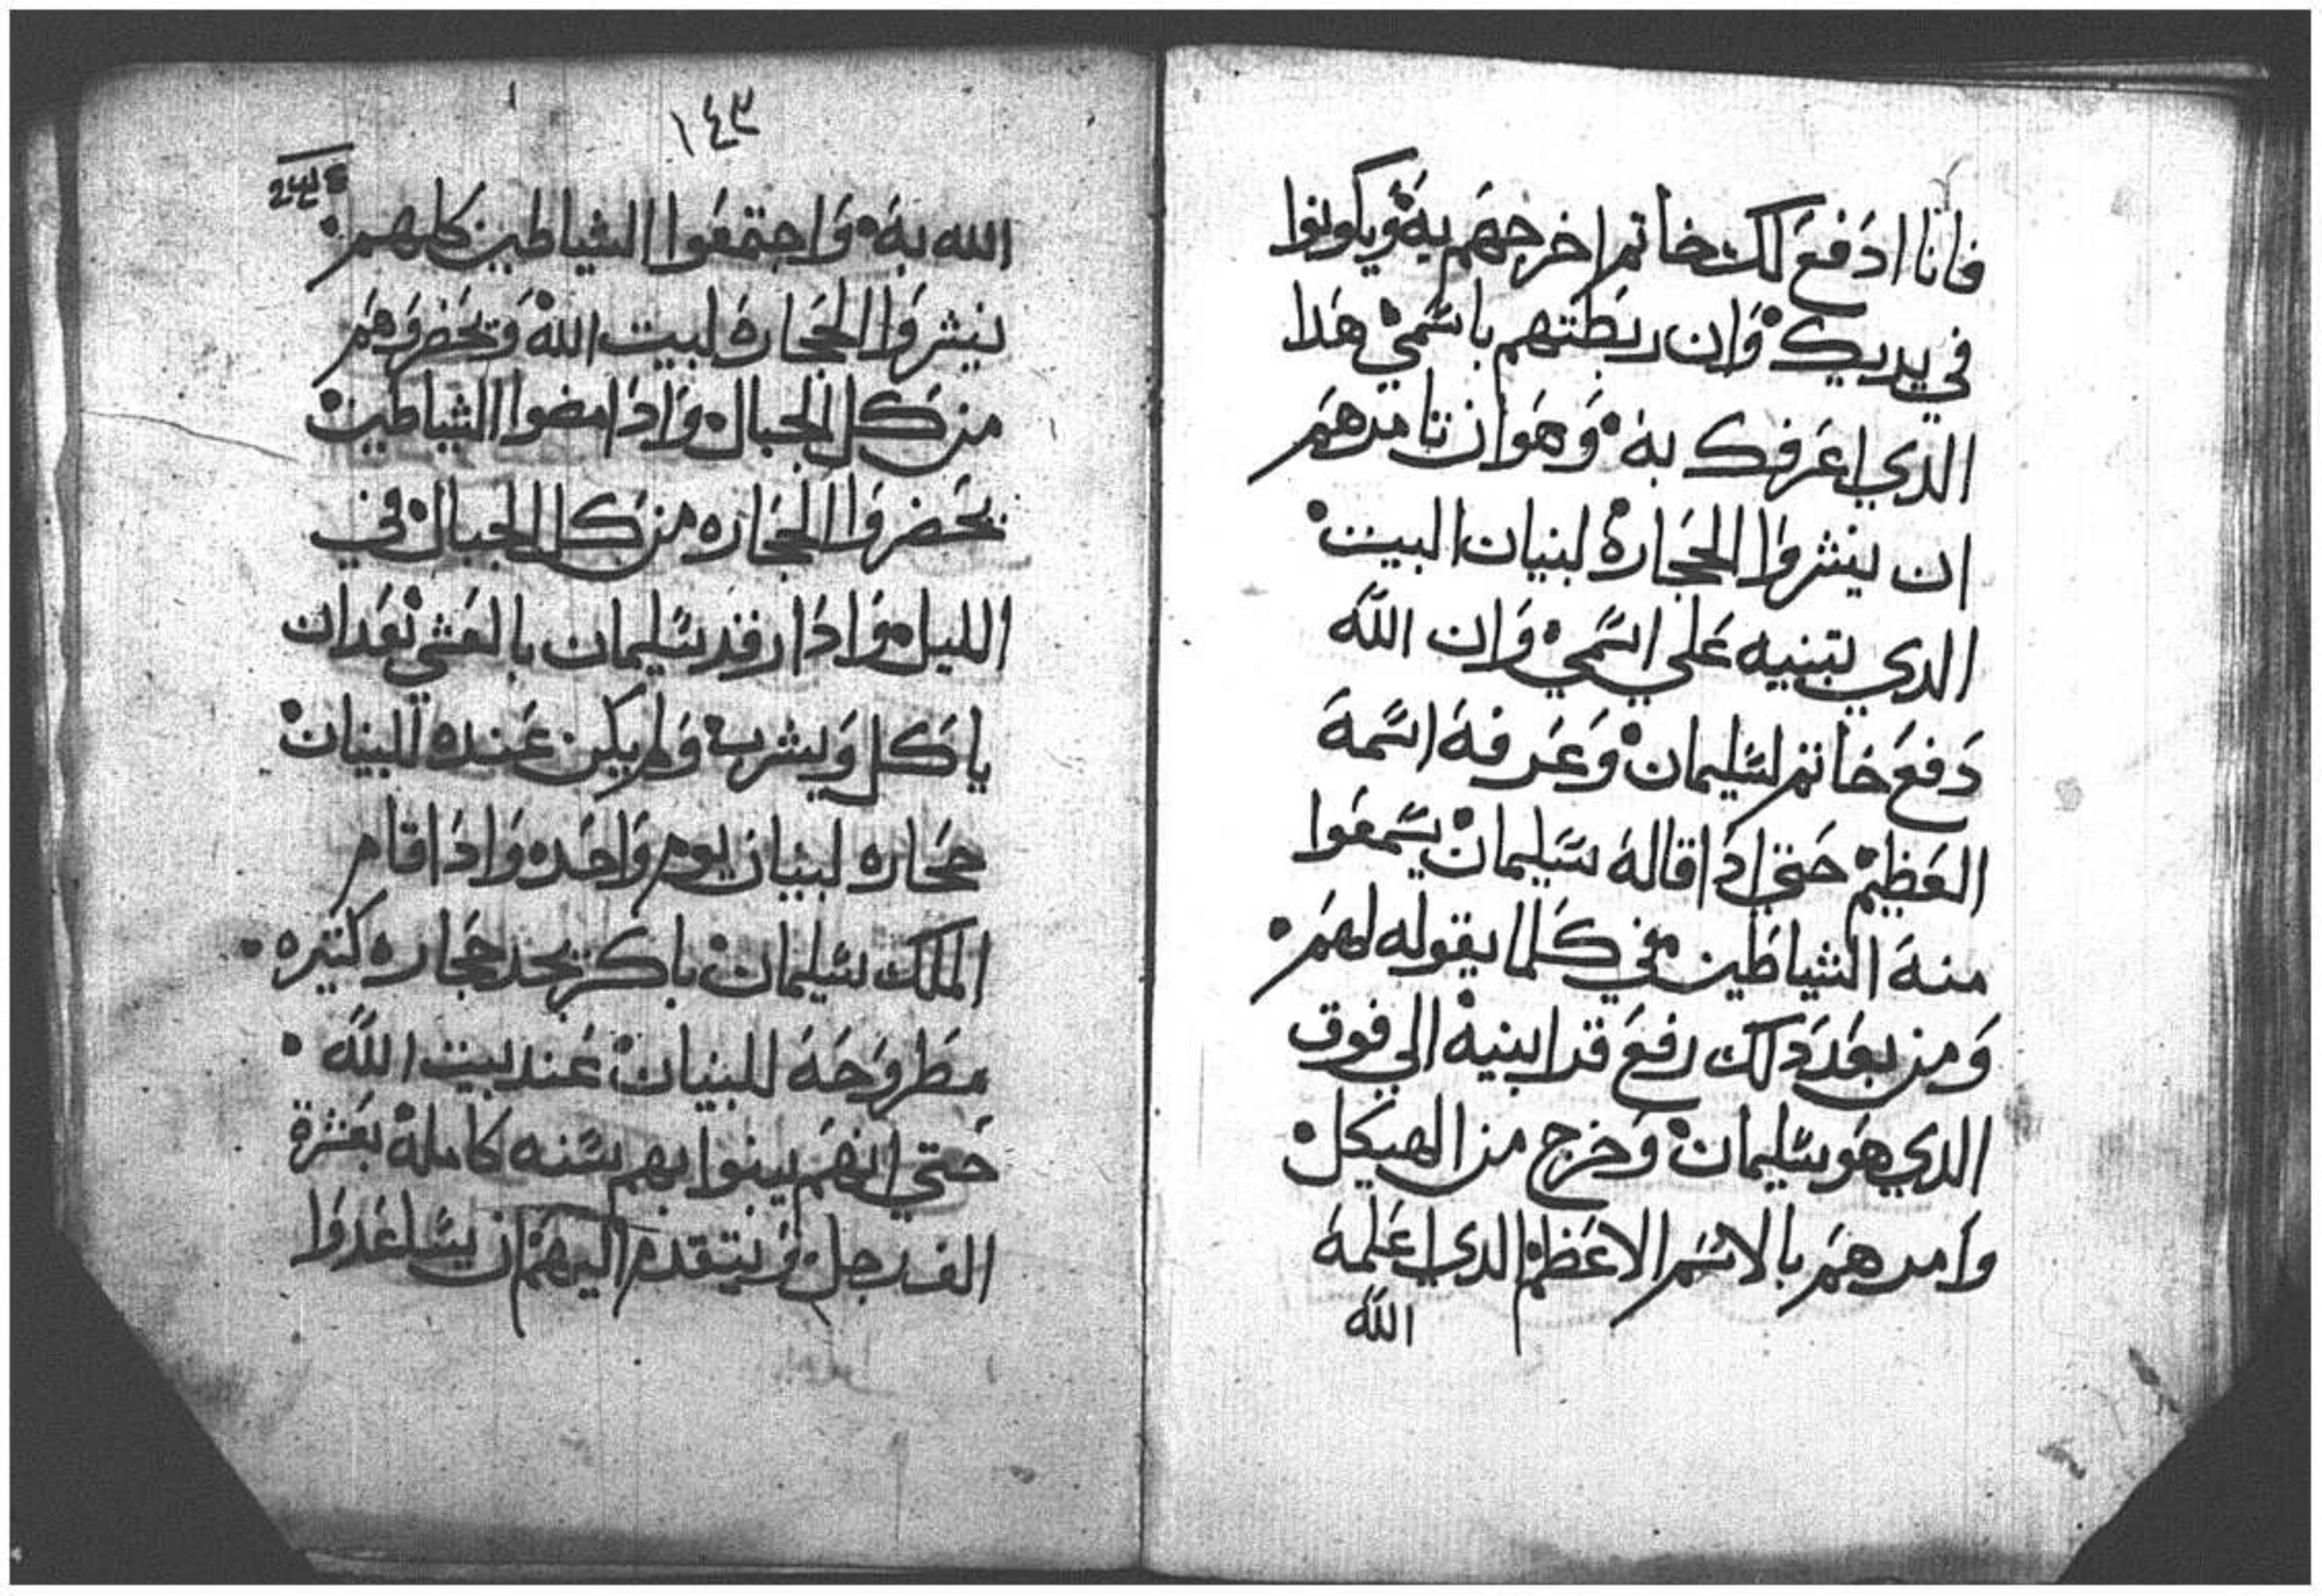 فانا ادفع لك خاتم اخرجهم به ويكونوا
في يديك وان ربطتهم باسمي هدا
الدي اعرفك به وهو ان تامرهم
ان ينشروا الحجارة لبنيان البيت
الدي تبنيه علي اسمي وان الله
دفع خاتم لسليمان وعرفه اسمه
العظيم حتي ادا قاله سليمان يسمعوا
منه الشياطين في كلما يقوله لهم
ومن بعد دلك رفع قرابينه الي فوق
الدي هو سليمان وخرج من الهيكل
وامرهم بالاسم الاعظم الدي اعلمه
الله
١٤٣
الله به واجتمعوا الشياطين كلهم
ينشروا الحجارة لبيت الله ويحضروهم
من كل الجبال وادا مضوا الشياطين
يحضروا الحجاره من كل الجبال في
الليل وادا رقد سليمان بالعشي بعد ان
ياكل ويشرب ولم يكن عنده البنيان
حجاره لبنيان يوم واحده وادا قام
الملك سليمان باكر يجد حجاره كتيره
مطروحه للبنيان عند بيت الله
حتي انهم يبنوا بهم سنه كامله بعشرة
الف رجل ويتقدم اليهم ان يساعدوا